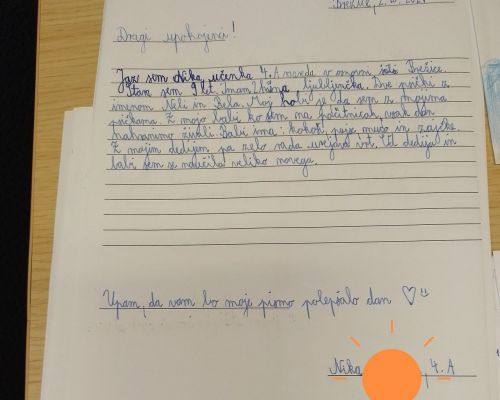 Brežice, 2.
Dragi upokojenci!
Jaz sem Nika, učenka 4. A razreda v osnovni šoli Brežice.
Stara sem 9 let. Imam 1 ljubljenčka. Dve ptički z
imenom Neli in Bela. Moj hobi je da sem z mojima
ptičkama. Z mojo babi ko sem na počitnicah, vsak dan
nahranimo živali. Babi ima: kokoši, psa, muco in zajčke.
Z mojim dedijem pa zelo rada urejava vrt. Od dedija in
babi sem se naučila veliko novega.
Upam, da vam bo moje pismo polepšalo dan ♡☺
Nika 4. A